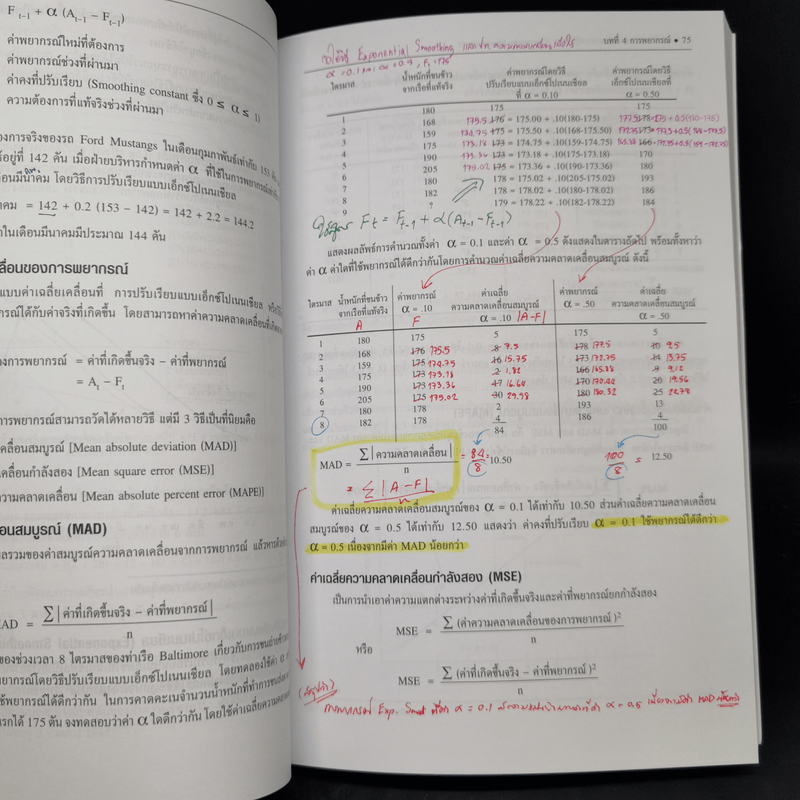 F t-1 + α (A t-1 − F t-1)
ค่าพยากรณ์ใหม่ที่ต้องการ
ค่าพยากรณ์ช่วงที่ผ่านมา
ค่าคงที่ปรับเรียบ (Smoothing constant ซึ่ง 0 ≤ α ≤ 1)
ความต้องการที่แท้จริงช่วงที่ผ่านมา
องการจริงของรถ Ford Mustangs ในเดือนกุมภาพันธ์เท่ากับ 153 คัน
อยู่ที่ 142 คัน เมื่อฝ่ายบริหารกำหนดค่า α ที่ใช้ในการพยากรณ์
โดยวิธีการปรับเรียบแบบเอ็กซ์โปเนนเชียล
= 142 + 0.2 (153 − 142) = 142 + 2.2 = 144.2
ในเดือนมีนาคมมีประมาณ 144 คัน
ลื่อนของการพยากรณ์
แบบค่าเฉลี่ยเคลื่อนที่ การปรับเรียบแบบเอ็กซ์โปเนนเชียล
กรณ์ได้กับค่าจริงที่เกิดขึ้น โดยสามารถหาค่าความคลาดเคลื่อน
องการพยากรณ์ = ค่าที่เกิดขึ้นจริง − ค่าที่พยากรณ์
= At − Ft
การพยากรณ์สามารถวัดได้หลายวิธี แต่มี 3 วิธีที่เป็นที่นิยมคือ
เคลื่อนสมบูรณ์ [Mean absolute deviation (MAD)]
เคลื่อนกำลังสอง [Mean square error (MSE)]
ความคลาดเคลื่อน [Mean absolute percent error (MAPE)]
อนสมบูรณ์ (MAD)
ลรวมของค่าสมบูรณ์ความคลาดเคลื่อนจากการพยากรณ์
MAD = ∑ | ค่าที่เกิดขึ้นจริง − ค่าที่พยากรณ์ |
n
ของช่วงเวลา 8 ไตรมาสของท่าเรือ Baltimore
พยากรณ์โดยวิธีปรับเรียบแบบเอ็กซ์โปเนนเชียล
ช้พยากรณ์ได้ดีกว่ากัน ในการคาดคะเนจำนวนน้ำหนัก
แรกได้ 175 ตัน จงทดสอบว่าค่า α ใดดีกว่ากัน
บทที่ 4 การพยากรณ์ • 75
Exponential Smoothing
ไตรมาส น้ำหนักที่ขนข้าว ค่าพยากรณ์โดยวิธี ค่าพยากรณ์โดยวิธี
จากเรือที่แท้จริง ปรับเรียบแบบเอ็กซ์โปเนนเชียล เอ็กซ์โปเนนเชียลที่
ที่ α = 0.10 α = 0.50
1 180 175 175
2 168 175.5 176 = 175.00 + .10(180-175) 177.5 178
3 159 174.75 175 = 175.50 + .10(168-175.50) 173
4 175 173.18 173 = 174.75 + .10(159-174.75) 166
5 190 173.36 173 = 173.18 + .10(175-173.18) 170
6 205 175.02 175 = 173.36 + .10(190-173.36) 180
7 180 178 = 175.02 + .10(205-175.02) 193
8 182 178 = 178.02 + .10(180-178.02) 186
9 ? 179 = 178.22 + .10(182-178.22) 184
Ft = Ft-1 + α(At-1 − Ft-1)
แสดงผลลัพธ์การคำนวณทั้งค่า α = 0.1 และค่า α = 0.5 ดังแสดงในตารางถัดไป พร้อมทั้งหาว่า
ค่า α ค่าใดที่ใช้พยากรณ์ได้ดีกว่ากันโดยการคำนวณค่าเฉลี่ยความคลาดเคลื่อนสมบูรณ์ ดังนี้
ไตรมาส น้ำหนักที่ขนข้าว ค่าพยากรณ์ ค่าเฉลี่ย ค่าพยากรณ์ ค่าเฉลี่ย
จากเรือที่แท้จริง α = .10 ความคลาดเคลื่อนสมบูรณ์ α = .50 ความคลาดเคลื่อนสมบูรณ์
A F α = .10 |A-F| α = .50
1 180 175 5 175 5
2 168 176 175.5 8 7.5 178 177.5 10 9.5
3 159 175 174.75 16 15.75 173 172.75 14 13.75
4 175 173 173.18 2 1.82 166 165.88 9 9.12
5 190 173 173.36 17 16.64 170 170.44 20 19.56
6 205 175 175.02 30 29.98 180 180.22 25 24.78
7 180 178 2 193 13
8 182 178 4 186 4
84 100
MAD = ∑ | ความคลาดเคลื่อน | = 84 = 10.50 100 = 12.50
n 8 8
= ∑ |A-F|
n
ค่าเฉลี่ยความคลาดเคลื่อนสมบูรณ์ของ α = 0.1 ได้เท่ากับ 10.50 ส่วนค่าเฉลี่ยความคลาดเคลื่อน
สมบูรณ์ของ α = 0.5 ได้เท่ากับ 12.50 แสดงว่า ค่าคงที่ปรับเรียบ α = 0.1 ใช้พยากรณ์ได้ดีกว่า
α = 0.5 เนื่องจากมีค่า MAD น้อยกว่า
ค่าเฉลี่ยความคลาดเคลื่อนกำลังสอง (MSE)
เป็นการนำเอาค่าความแตกต่างระหว่างค่าที่เกิดขึ้นจริงและค่าที่พยากรณ์ยกกำลังสอง
MSE = ∑ (ค่าความคลาดเคลื่อนของการพยากรณ์ )²
n
หรือ
MSE = ∑ (ค่าที่เกิดขึ้นจริง − ค่าที่พยากรณ์ )²
n